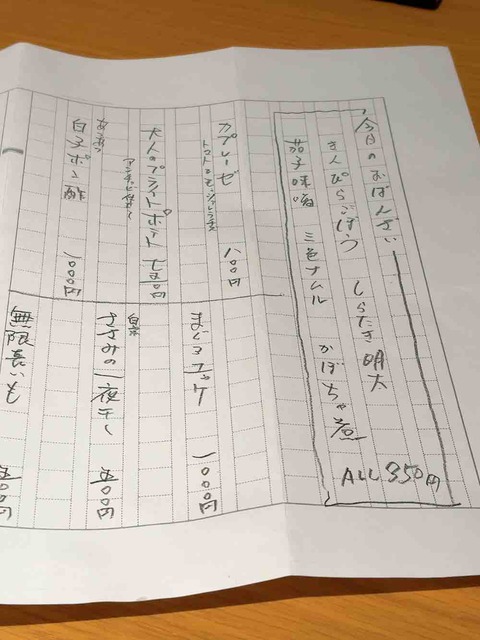 今日のおばんざい
きんぴらごぼう しらたき明太
茄子味噌 三色ナムル かぼちゃ煮
ALL 350円
カプレーゼ 八〇〇円
トマトとモッツァレラチーズ
大人のフライドポテト 七五〇円
アンチョビ仕立て
あつあつ
白子ポン酢 一〇〇〇円
まぐろユッケ 一〇〇〇円
ささみの一夜干し 五〇〇円
無限長いも 五〇〇円